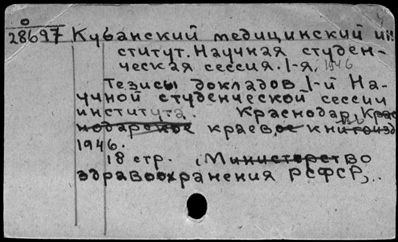 28697 Кубанский медицинский ин-
ститут. Научная студен-
ческая сессия. 1-я. 1946
Тезисы докладов 1-й На-
учной студенческой сессии
института. Краснодар, Крас-
нодарское краевое книгоизд
1946.
18 стр. (Министерство
здравоохранения РСФСР)..